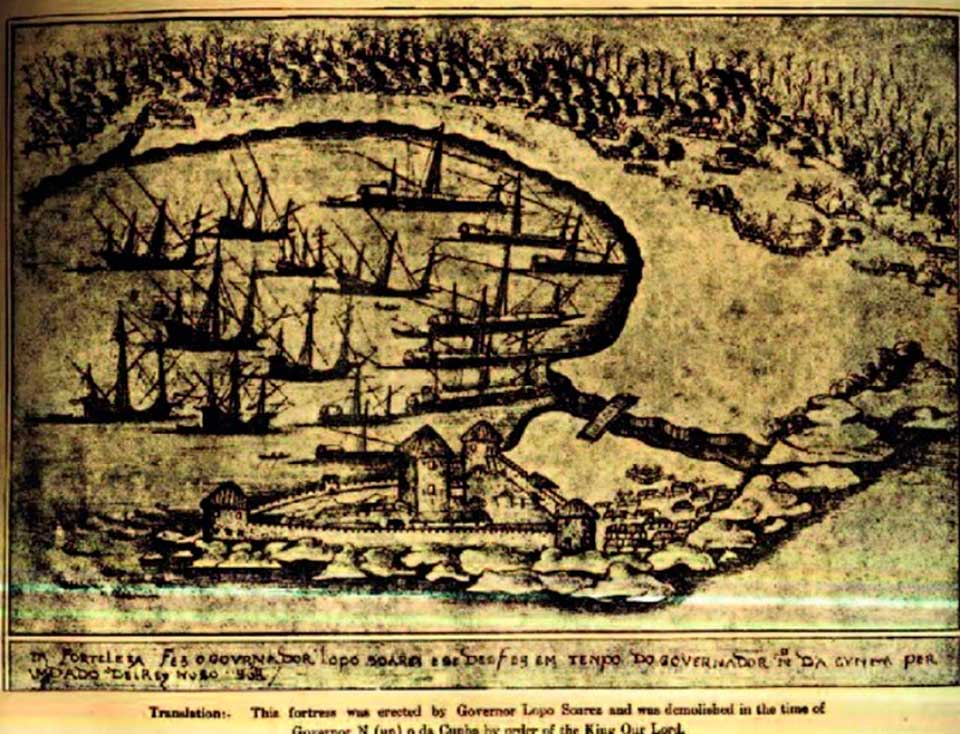 FORTELEZA FES O GOVRNADOR LOPO SOARES E SE DESFES EM TENPO DO GOVERNADOR Nº DA CVNHA PER
MDADO DELREY NOSO SOR
Translation:- This fortress was erected by Governor Lopo Soares and was demolished in the time of
Governor N (un) o da Cunha by order of the King Our Lord.